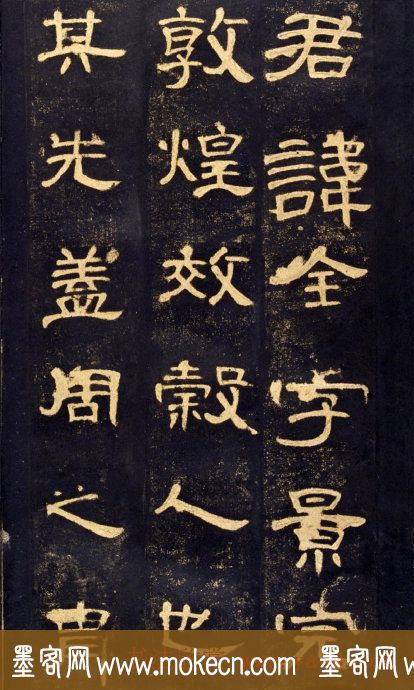 君諱全字景完
敦煌效穀人也
其先蓋周之胄
墨客网 www.mokecn.com 墨客网